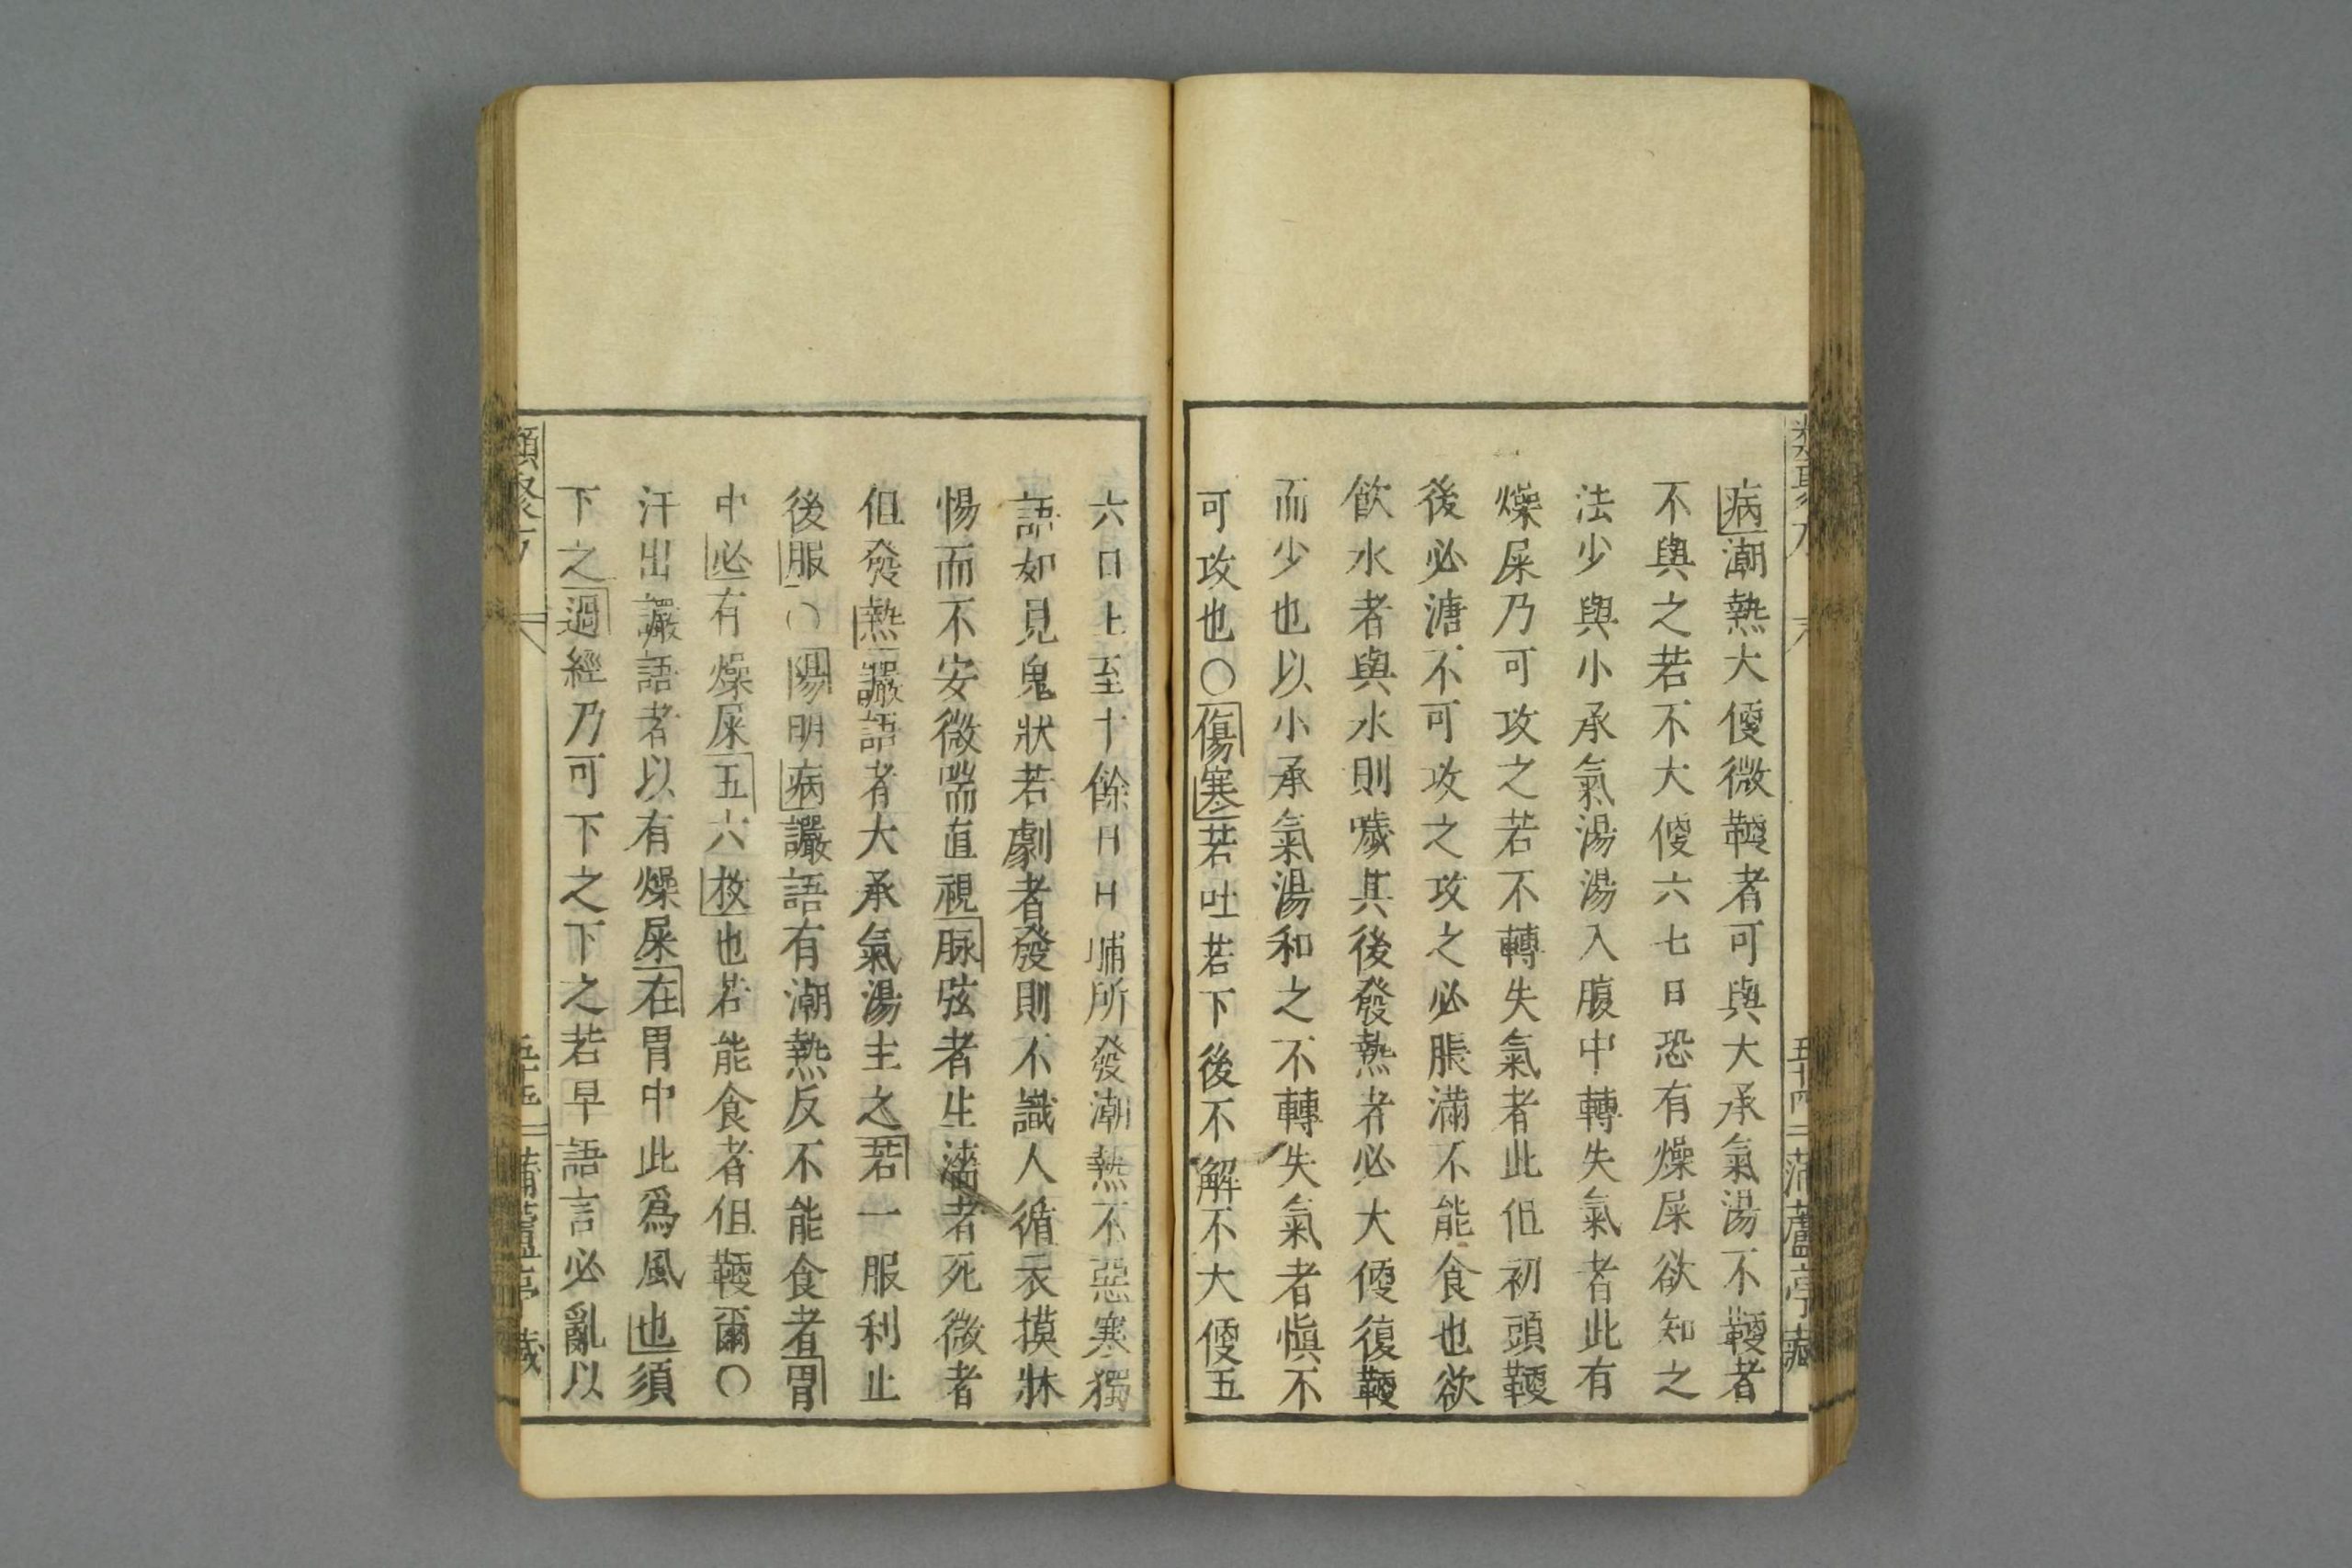 病潮熱大便微鞕者可與大承氣湯不鞕者
不與之若不大便六七日恐有燥屎欲知之
法少與小承氣湯湯入腹中轉失氣者此有
燥屎乃可攻之若不轉失氣者此但初頭鞕
後必溏不可攻之攻之必脹滿不能食也欲
飲水者與水則噦其後發熱者必大便復鞕
而少也以小承氣湯和之不轉失氣者愼不
可攻也○傷寒若吐若下後不解不大便五
六日上至十餘日日晡所發潮熱不惡寒獨
語如見鬼狀若劇者發則不識人循衣摸牀
惕而不安微喘直視脉弦者生濇者死微者
但發熱讝語者大承氣湯主之若一服利止
後服○陽明病讝語有潮熱反不能食者胃
中必有燥屎五六枚也若能食者但鞕爾○
汗出讝語者以有燥屎在胃中此爲風也須
下之過經乃可下之下之若早語言必亂以